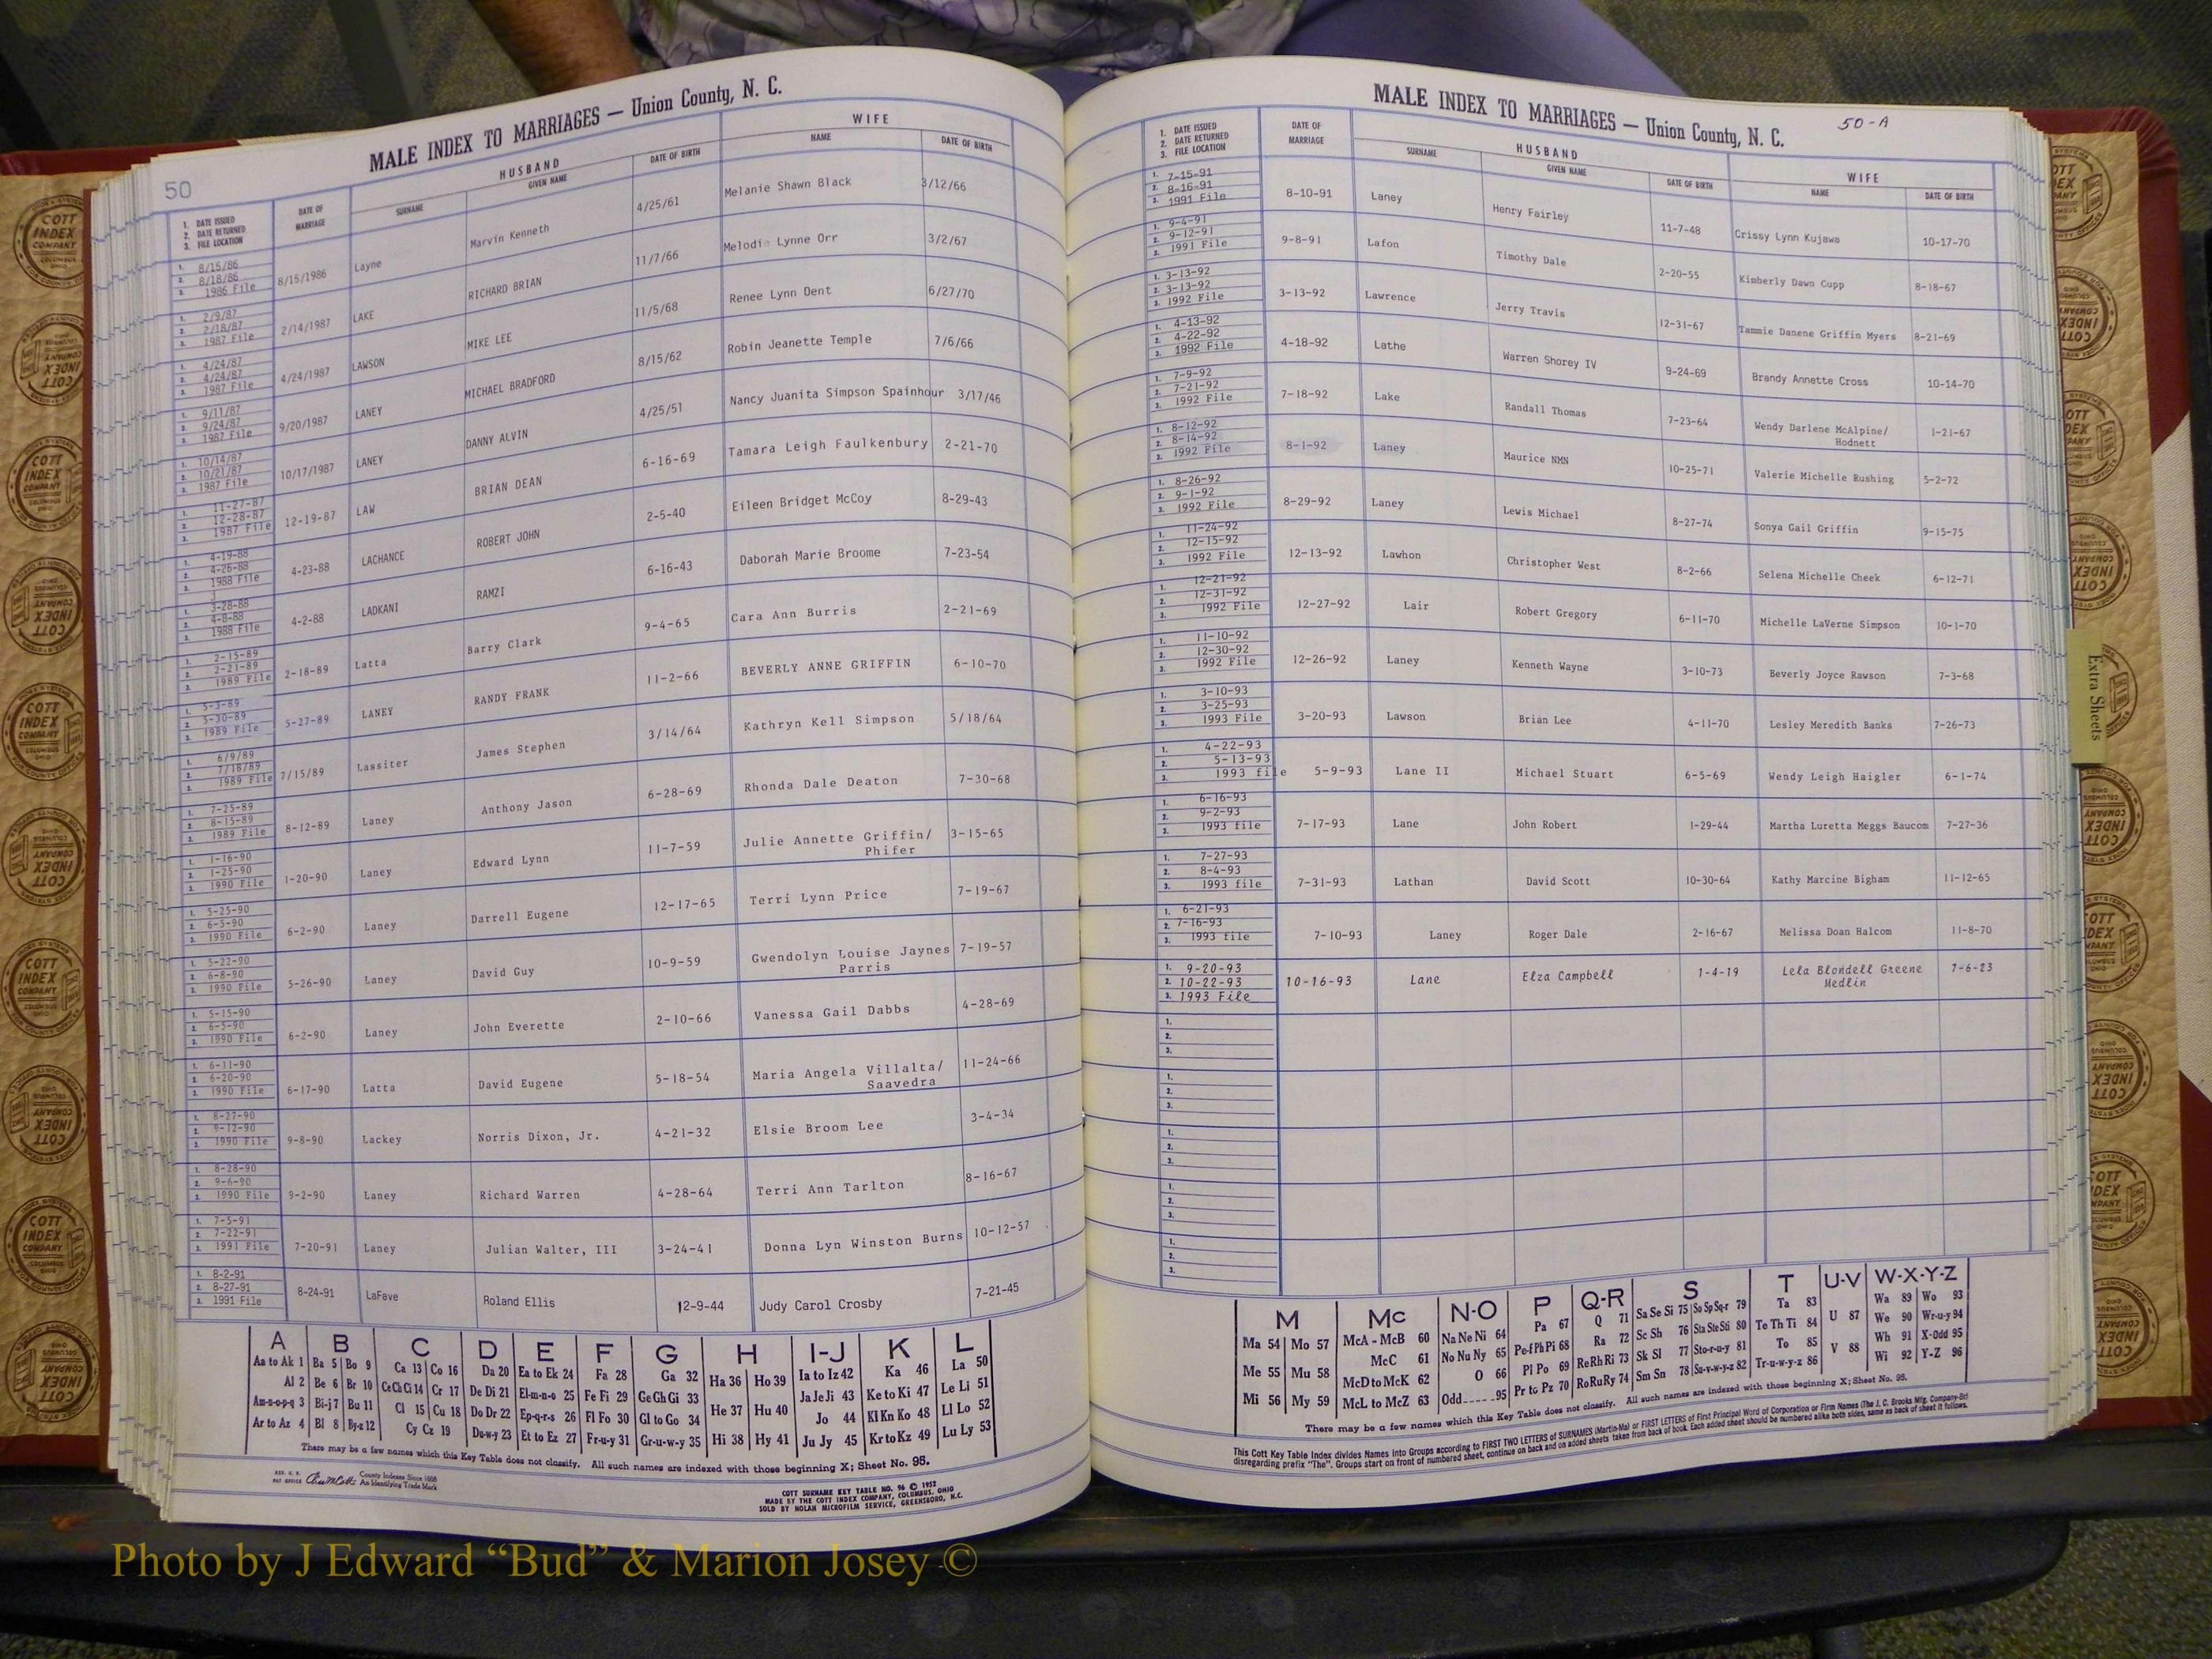 50
MALE INDEX TO MARRIAGES — Union County, N. C.
1. DATE ISSUED
2. DATE RETURNED
3. FILE LOCATION
DATE OF MARRIAGE
HUSBAND
SURNAME GIVEN NAME DATE OF BIRTH
WIFE
NAME DATE OF BIRTH
1. 8/15/86
2. 8/18/86
3. 1986 File
8/15/1986 Layne Marvin Kenneth 4/25/61 Melanie Shawn Black 3/12/66
1. 2/9/87
2. 2/18/87
3. 1987 File
2/14/1987 LAKE RICHARD BRIAN 11/7/66 Melodie Lynne Orr 3/2/67
1. 4/24/87
2. 4/24/87
3. 1987 File
4/24/1987 LAWSON MIKE LEE 11/5/68 Renee Lynn Dent 6/27/70
1. 9/11/87
2. 9/24/87
3. 1987 File
9/20/1987 LANEY MICHAEL BRADFORD 8/15/62 Robin Jeanette Temple 7/6/66
1. 10/14/87
2. 10/21/87
3. 1987 File
10/17/1987 LANEY DANNY ALVIN 4/25/51 Nancy Juanita Simpson Spainhour 3/17/46
1. 11-27-87
2. 12-28-87
3. 1987 File
12-19-87 LAW BRIAN DEAN 6-16-69 Tamara Leigh Faulkenbury 2-21-70
1. 4-19-88
2. 4-26-88
3. 1988 File
4-23-88 LACHANCE ROBERT JOHN 2-5-40 Eileen Bridget McCoy 8-29-43
1. 3-28-88
2. 4-8-88
3. 1988 File
4-2-88 LADKANI RAMZI 6-16-43 Daborah Marie Broome 7-23-54
1. 2-15-89
2. 2-21-89
3. 1989 File
2-18-89 Latta Barry Clark 9-4-65 Cara Ann Burris 2-21-69
1. 5-3-89
2. 5-30-89
3. 1989 File
5-27-89 LANEY RANDY FRANK 11-2-66 BEVERLY ANNE GRIFFIN 6-10-70
1. 6/9/89
2. 7/18/89
3. 1989 File
7/15/89 Lassiter James Stephen 3/14/64 Kathryn Kell Simpson 5/18/64
1. 7-25-89
2. 8-15-89
3. 1989 File
8-12-89 Laney Anthony Jason 6-28-69 Rhonda Dale Deaton 7-30-68
1. 1-16-90
2. 1-25-90
3. 1990 File
1-20-90 Laney Edward Lynn 11-7-59 Julie Annette Griffin/ 3-15-65
Phifer
1. 5-25-90
2. 6-5-90
3. 1990 File
6-2-90 Laney Darrell Eugene 12-17-65 Terri Lynn Price 7-19-67
1. 5-22-90
2. 6-8-90
3. 1990 File
5-26-90 Laney David Guy 10-9-59 Gwendolyn Louise Jaynes 7-19-57
Parris
1. 5-15-90
2. 6-5-90
3. 1990 File
6-2-90 Laney John Everette 2-10-66 Vanessa Gail Dabbs 4-28-69
1. 6-11-90
2. 6-20-90
3. 1990 File
6-17-90 Latta David Eugene 5-18-54 Maria Angela Villalta/ 11-24-66
Saavedra
1. 8-27-90
2. 9-12-90
3. 1990 File
9-8-90 Lackey Norris Dixon, Jr. 4-21-32 Elsie Broom Lee 3-4-34
1. 8-28-90
2. 9-6-90
3. 1990 File
9-2-90 Laney Richard Warren 4-28-64 Terri Ann Tarlton 8-16-67
1. 7-5-91
2. 7-22-91
3. 1991 File
7-20-91 Laney Julian Walter, III 3-24-41 Donna Lyn Winston Burns 10-12-57
1. 8-2-91
2. 8-27-91
3. 1991 File
8-24-91 LaFave Roland Ellis 12-9-44 Judy Carol Crosby 7-21-45
A B C D E F G H I-J K L
Aa to Ak 1 Ba 5 Bo 9 Ca 13 Co 16 Da 20 Ea to Ek 24 Fa 28 Ga 32 Ha 36 Ho 39 Ia to Iz 42 Ka 46 La 50
Al 2 Be 6 Br 10 Ce Ch Ci 14 Cr 17 De Di 21 El-m-n-o 25 Fe Fi 29 Ge Gh Gi 33 He 37 Hu 40 Ja Je Ji 43 Ke to Ki 47 Le Li 51
Am-n-o-p-q 3 Bi-j 7 Bu 11 Cl 15 Cu 18 Do Dr 22 Ep-q-r-s 26 Fl Fo 30 Gl to Go 34 Hi 38 Hy 41 Jo 44 Kl Kn Ko 48 Ll Lo 52
Ar to Az 4 Bl 8 By-z 12 Cy Cz 19 Du-w-y 23 Et to Ez 27 Fr-u-y 31 Gr-u-w-y 35 Ju Jy 45 Kr to Kz 49 Lu Ly 53
There may be a few names which this Key Table does not classify. All such names are indexed with those beginning X; Sheet No. 95.
REG. U. S. PAT OFFICE
County Indexes Since 1888
An Identifying Trade Mark
COTT SURNAME KEY TABLE NO. 96 © 1952
MADE BY THE COTT INDEX COMPANY, COLUMBUS, OHIO
SOLD BY NOLAN MICROFILM SERVICE, GREENSBORO, N.C.
MALE INDEX TO MARRIAGES — Union County, N. C.
50-A
1. DATE ISSUED
2. DATE RETURNED
3. FILE LOCATION
DATE OF MARRIAGE
HUSBAND
SURNAME GIVEN NAME DATE OF BIRTH
WIFE
NAME DATE OF BIRTH
1. 7-15-91
2. 8-16-91
3. 1991 File
8-10-91 Laney Henry Fairley 11-7-48 Crissy Lynn Kujawa 10-17-70
1. 9-4-91
2. 9-12-91
3. 1991 File
9-8-91 Lafon Timothy Dale 2-20-55 Kimberly Dawn Cupp 8-18-67
1. 3-13-92
2. 3-13-92
3. 1992 File
3-13-92 Lawrence Jerry Travis 12-31-67 Tammie Danene Griffin Myers 8-21-69
1. 4-13-92
2. 4-22-92
3. 1992 File
4-18-92 Lathe Warren Shorey IV 9-24-69 Brandy Annette Cross 10-14-70
1. 7-9-92
2. 7-21-92
3. 1992 File
7-18-92 Lake Randall Thomas 7-23-64 Wendy Darlene McAlpine/ 1-21-67
Hodnett
1. 8-12-92
2. 8-14-92
3. 1992 File
8-1-92 Laney Maurice NMN 10-25-71 Valerie Michelle Rushing 5-2-72
1. 8-26-92
2. 9-1-92
3. 1992 File
8-29-92 Laney Lewis Michael 8-27-74 Sonya Gail Griffin 9-15-75
1. 11-24-92
2. 12-15-92
3. 1992 File
12-13-92 Lawhon Christopher West 8-2-66 Selena Michelle Cheek 6-12-71
1. 12-21-92
2. 12-31-92
3. 1992 File
12-27-92 Lair Robert Gregory 6-11-70 Michelle LaVerne Simpson 10-1-70
1. 11-10-92
2. 12-30-92
3. 1992 File
12-26-92 Laney Kenneth Wayne 3-10-73 Beverly Joyce Rawson 7-3-68
1. 3-10-93
2. 3-25-93
3. 1993 File
3-20-93 Lawson Brian Lee 4-11-70 Lesley Meredith Banks 7-26-73
1. 4-22-93
2. 5-13-93
3. 1993 file
5-9-93 Lane II Michael Stuart 6-5-69 Wendy Leigh Haigler 6-1-74
1. 6-16-93
2. 9-2-93
3. 1993 file
7-17-93 Lane John Robert 1-29-44 Martha Luretta Meggs Baucom 7-27-36
1. 7-27-93
2. 8-4-93
3. 1993 file
7-31-93 Lathan David Scott 10-30-64 Kathy Marcine Bigham 11-12-65
1. 6-21-93
2. 7-16-93
3. 1993 file
7-10-93 Laney Roger Dale 2-16-67 Melissa Doan Halcom 11-8-70
1. 9-20-93
2. 10-22-93
3. 1993 File
10-16-93 Lane Elza Campbell 1-4-19 Lela Blondell Greene 7-6-23
Medlin
1.
2.
3.
1.
2.
3.
1.
2.
3.
1.
2.
3.
1.
2.
3.
M Mc N-O P Q-R S T U-V W-X-Y-Z
Ma 54 Mo 57 McA - McB 60 Na Ne Ni 64 Pa 67 Q 71 Sa Se Si 75 So Sp Sq-r 79 Ta 83 U 87 Wa 89 Wo 93
Me 55 Mu 58 McC 61 No Nu Ny 65 Pe-f Ph Pi 68 Ra 72 Sc Sh 76 Sta Ste Sti 80 Te Th Ti 84 V 88 We 90 Wr-u-y 94
Mi 56 My 59 McD to McK 62 O 66 Pl Po 69 Re Rh Ri 73 Sk Sl 77 Sto-r-u-y 81 To 85 Wh 91 X-Odd 95
McL to McZ 63 Odd 95 Pr to Pz 70 Ro Ru Ry 74 Sm Sn 78 Su-v-w-y-z 82 Tr-u-w-y-z 86 Wi 92 Y-Z 96
There may be a few names which this Key Table does not classify. All such names are indexed with those beginning X; Sheet No. 95.
This Cott Key Table Index divides Names into Groups according to FIRST TWO LETTERS of SURNAMES (Martin-Ma) or FIRST LETTERS of First Principal Word of Corporation or Firm Names (The J. C. Brooks Mfg. Company-Br)
disregarding prefix "The". Groups start on front of numbered sheet, continue on back and on added sheets taken from back of book. Each added sheet should be numbered alike both sides, same as back of sheet it follows.
Extra Sheets
COTT INDEX COMPANY COLUMBUS OHIO
Photo by J Edward “Bud” & Marion Josey ©